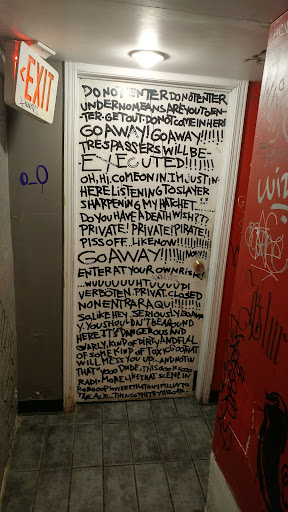 EXIT
DO NOT ENTER DO NOT ENTER
UNDER NO MEANS ARE YOU TO EN-
TER. GET OUT. DO NOT COME IN HERE
GO AWAY! GO AWAY!!!!!!
TRESPASSERS WILL BE-
EXECUTED!!!!!
OH, HI. COME ON IN. I'M JUST IN
HERE LISTENING TO SLAYER
SHARPENING MY HATCHET
DO YOU HAVE A DEATH WISH???
PRIVATE! PRIVATE! PIRATE!!
PISS OFF... LIKE NOW!!!!!!!
GO AWAY!!!!!!! NOW!!
ENTER AT YOUR OWN RISK!
VERBOTEN. PRIVAT. CLOSED
NON ENTRAR AQUI!!!!!!!
SO, LIKE HEY, SERIOUSLY, GO AWA
Y. YOU SHOULDN'T BE AROUND
HERE. IT'S DANGEROUS AND
GNARLY, KIND OF DIRTY, AND FULL
OF SOME KIND OF TOXIC GOO THAT
WILL MESS YOU UP. AND NOT IN
THAT "YOOO DUDE, THIS IS SO GOOD
RAD". MORE LIKE THAT SCENE IN
ROBOCOP WHERE THE GUY FELL IN TO
THE ACID. THEN GOT HIT BY THE CAR
O_O